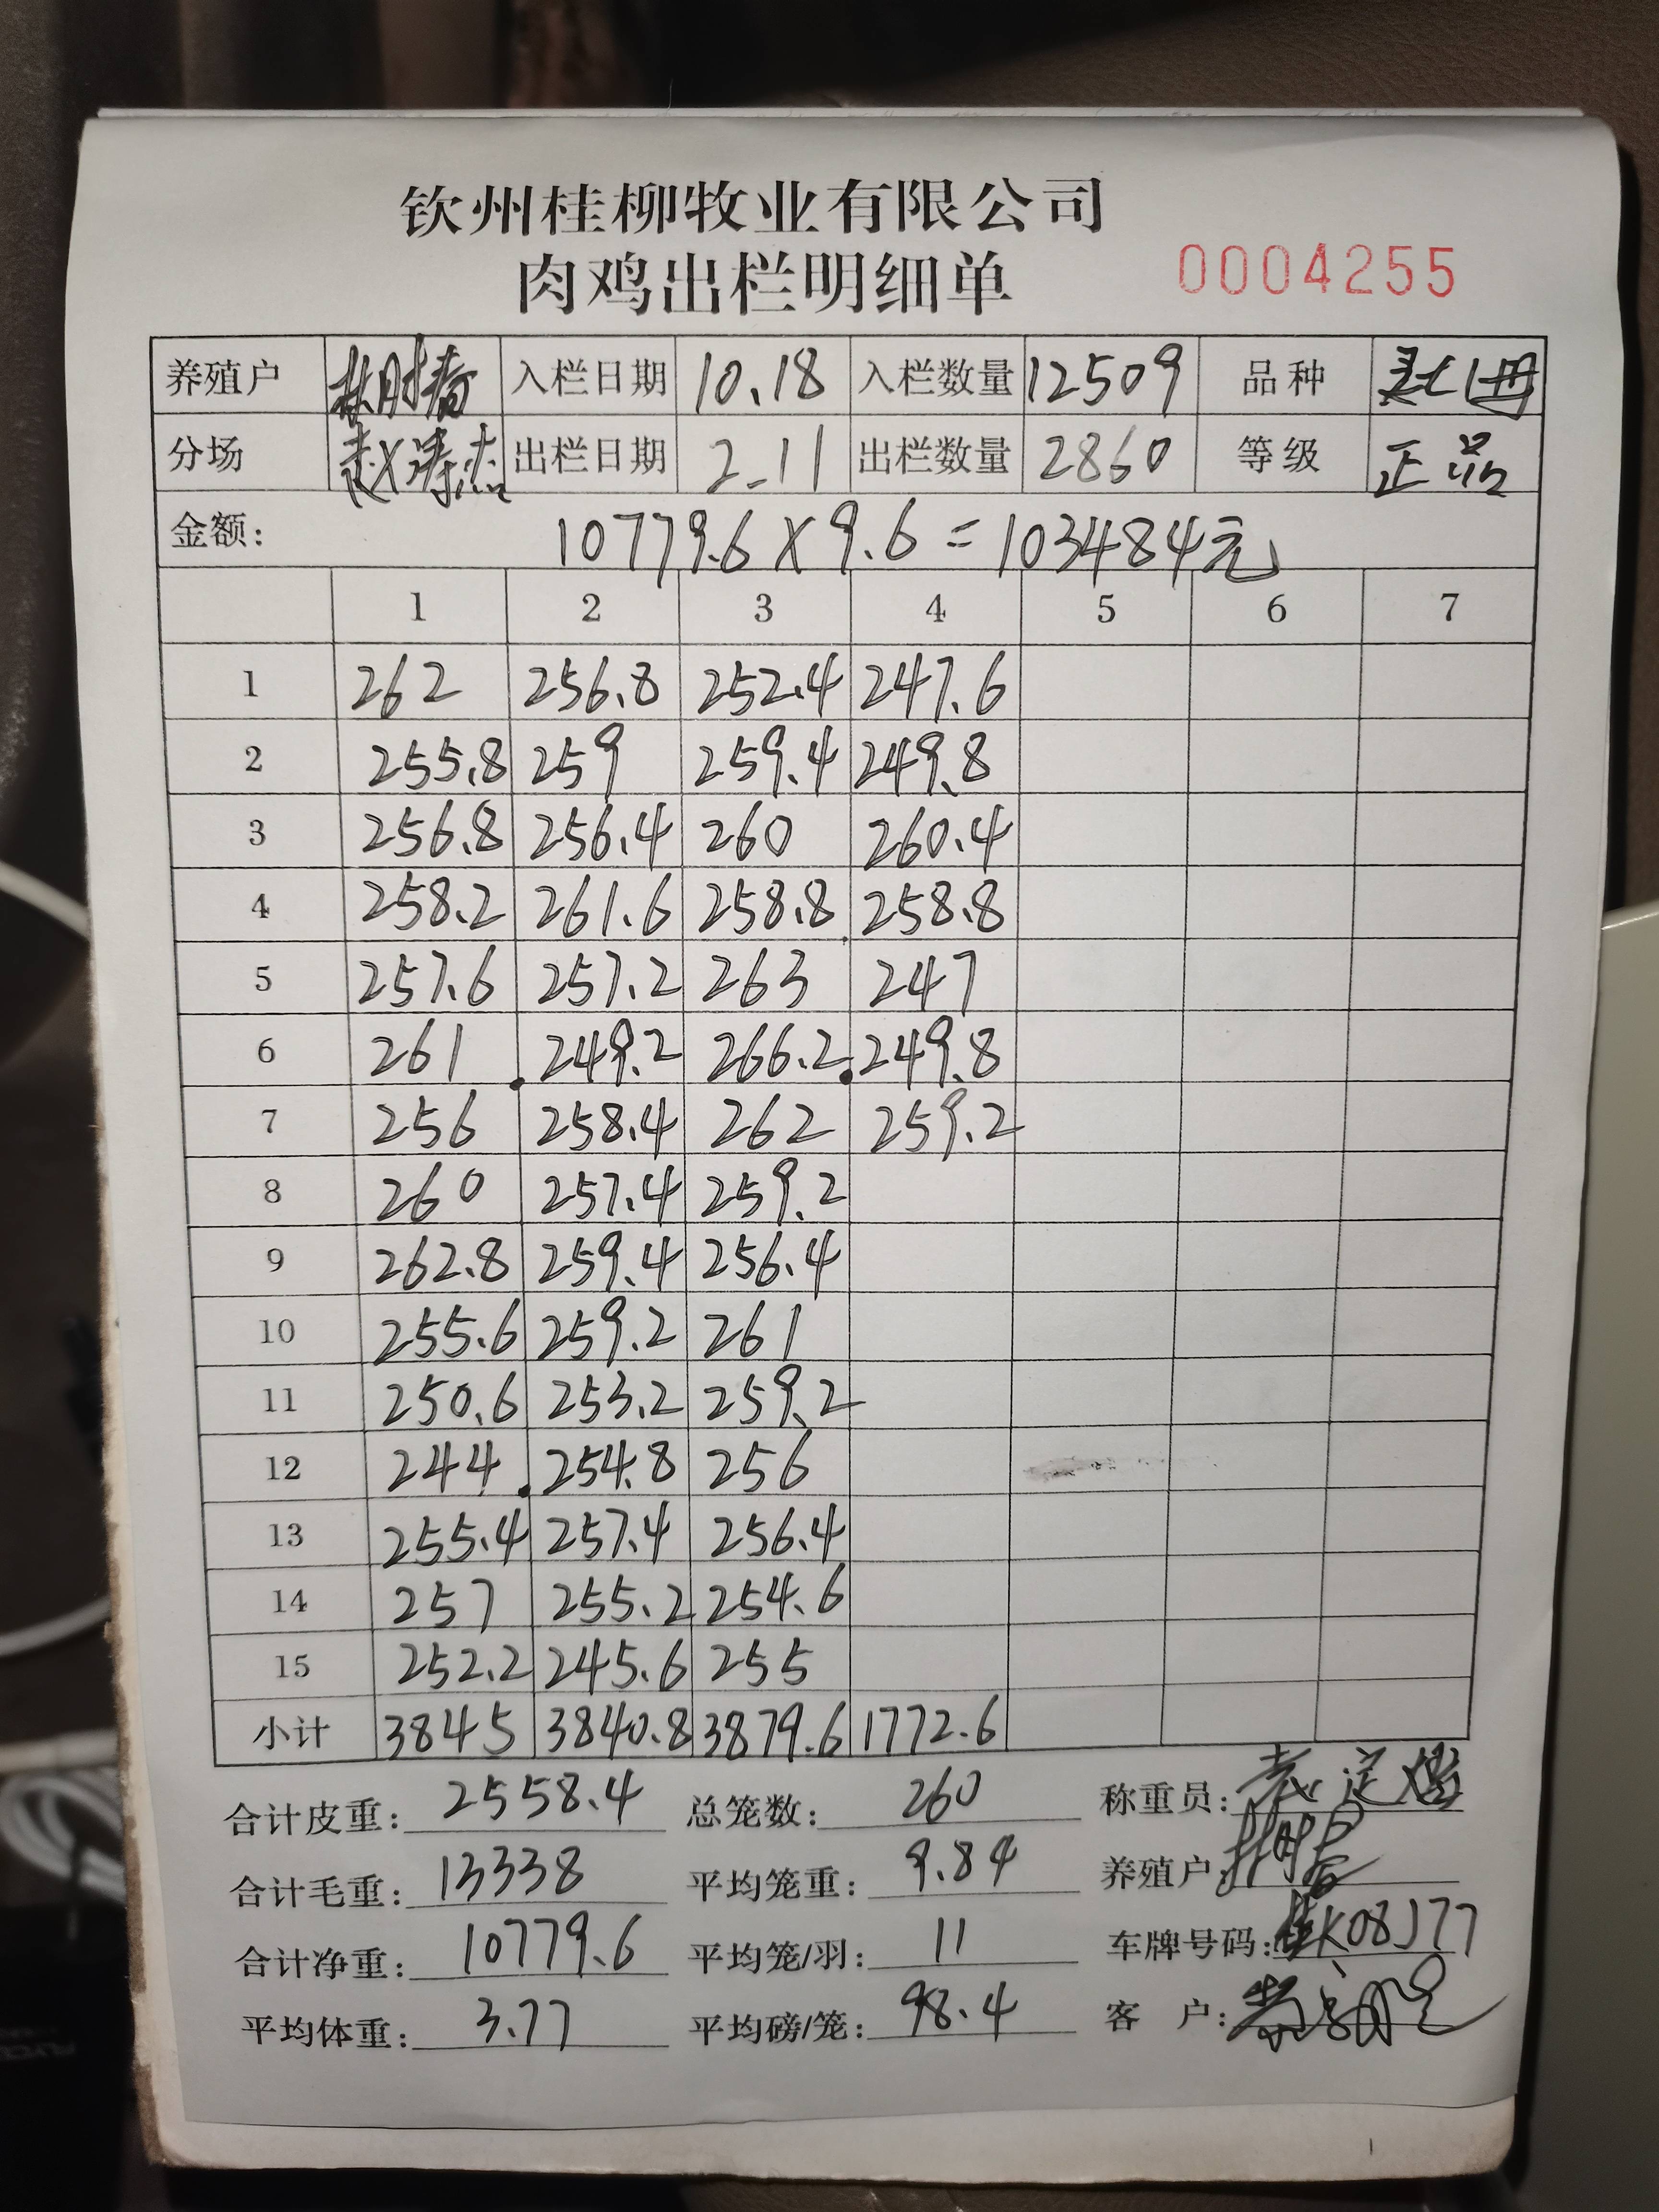 钦州桂柳牧业有限公司
肉鸡出栏明细单 0004255
养殖户 入栏日期 10.18 入栏数量 12509 品种
分场 赵涛杰 出栏日期 2.11 出栏数量 2860 等级 正品
金额: 10779.6×9.6=103484元
1 2 3 4 5 6 7
1 262 256.8 252.4 247.6
2 255.8 259 259.4 249.8
3 256.8 256.4 260 260.4
4 258.2 261.6 258.8 258.8
5 257.6 257.2 263 247
6 261 249.2 266.2 249.8
7 256 258.4 262 259.2
8 260 257.4 259.2
9 262.8 259.4 256.4
10 255.6 259.2 261
11 250.6 253.2 259.2
12 244 254.8 256
13 255.4 257.4 256.4
14 257 255.2 254.6
15 252.2 245.6 255
小计 3845 3840.8 3879.6 1772.6
合计皮重: 2558.4 总笼数: 260 称重员:
合计毛重: 13338 平均笼重: 9.84 养殖户:
合计净重: 10779.6 平均笼/羽: 11 车牌号码: 桂K08J77
平均体重: 3.77 平均磅/笼: 98.4 客户: